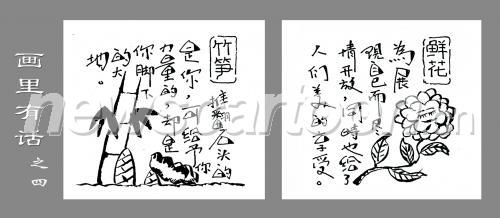 画里有话
之四
竹笋
推翻石头的
是你,可给予你
力量的,却是
你脚下
的大
地。
鲜花
為展
現自己而
情开放,同時也给了
人们美的享受。